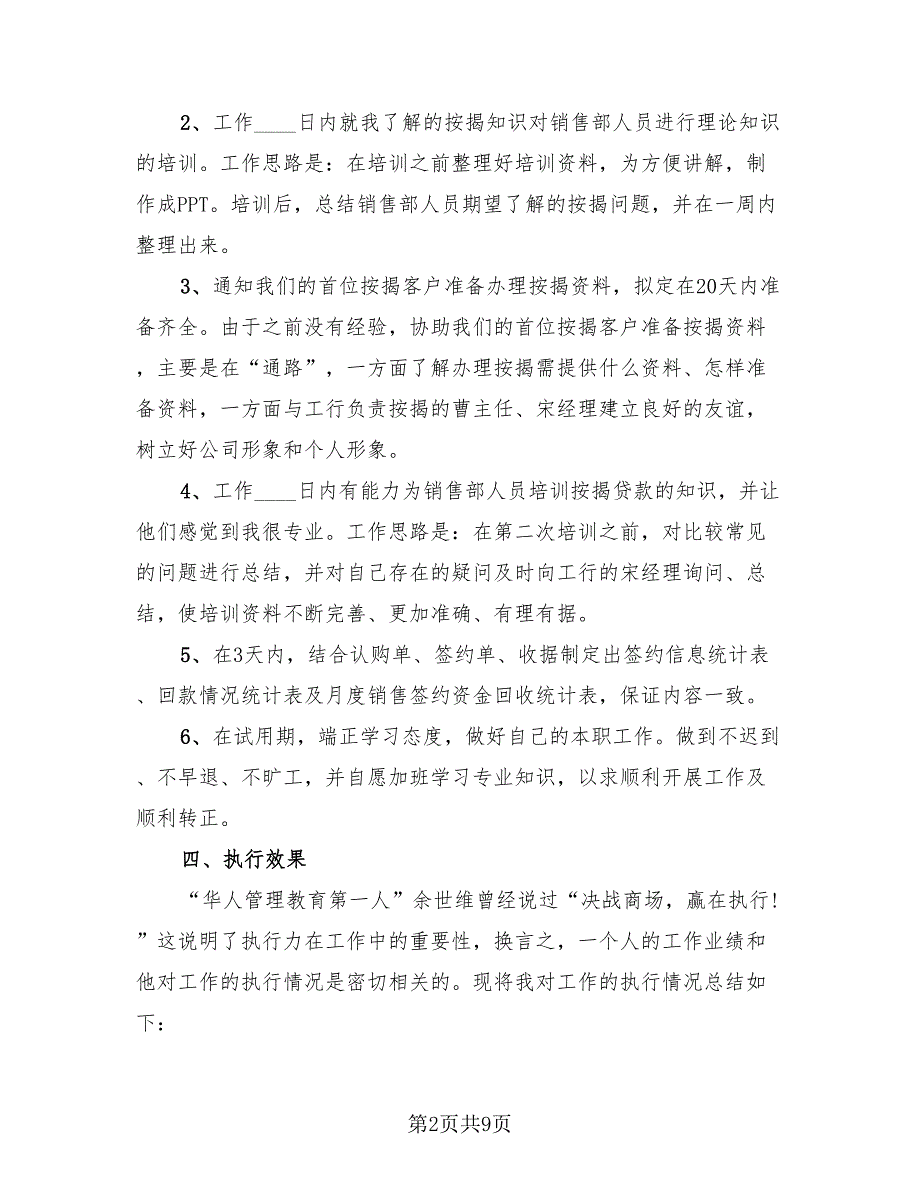 2、工作____日内就我了解的按揭知识对销售部人员进行理论知识
的培训。工作思路是：在培训之前整理好培训资料，为方便讲解，制
作成PPT。培训后，总结销售部人员期望了解的按揭问题，并在一周内
整理出来。
3、通知我们的首位按揭客户准备办理按揭资料，拟定在20天内准
备齐全。由于之前没有经验，协助我们的首位按揭客户准备按揭资料
，主要是在“通路”，一方面了解办理按揭需提供什么资料、怎样准
备资料，一方面与工行负责按揭的曹主任、宋经理建立良好的友谊，
树立好公司形象和个人形象。
4、工作____日内有能力为销售部人员培训按揭贷款的知识，并让
他们感觉到我很专业。工作思路是：在第二次培训之前，对比较常见
的问题进行总结，并对自己存在的疑问及时向工行的宋经理询问、总
结，使培训资料不断完善、更加准确、有理有据。
5、在3天内，结合认购单、签约单、收据制定出签约信息统计表
、回款情况统计表及月度销售签约资金回收统计表，保证内容一致。
6、在试用期，端正学习态度，做好自己的本职工作。做到不迟到
、不早退、不旷工，并自愿加班学习专业知识，以求顺利开展工作及
顺利转正。
四、执行效果
“华人管理教育第一人”余世维曾经说过“决战商场，赢在执行！
”这说明了执行力在工作中的重要性，换言之，一个人的工作业绩和
他对工作的执行情况是密切相关的。现将我对工作的执行情况总结如
下：
第2页共9页